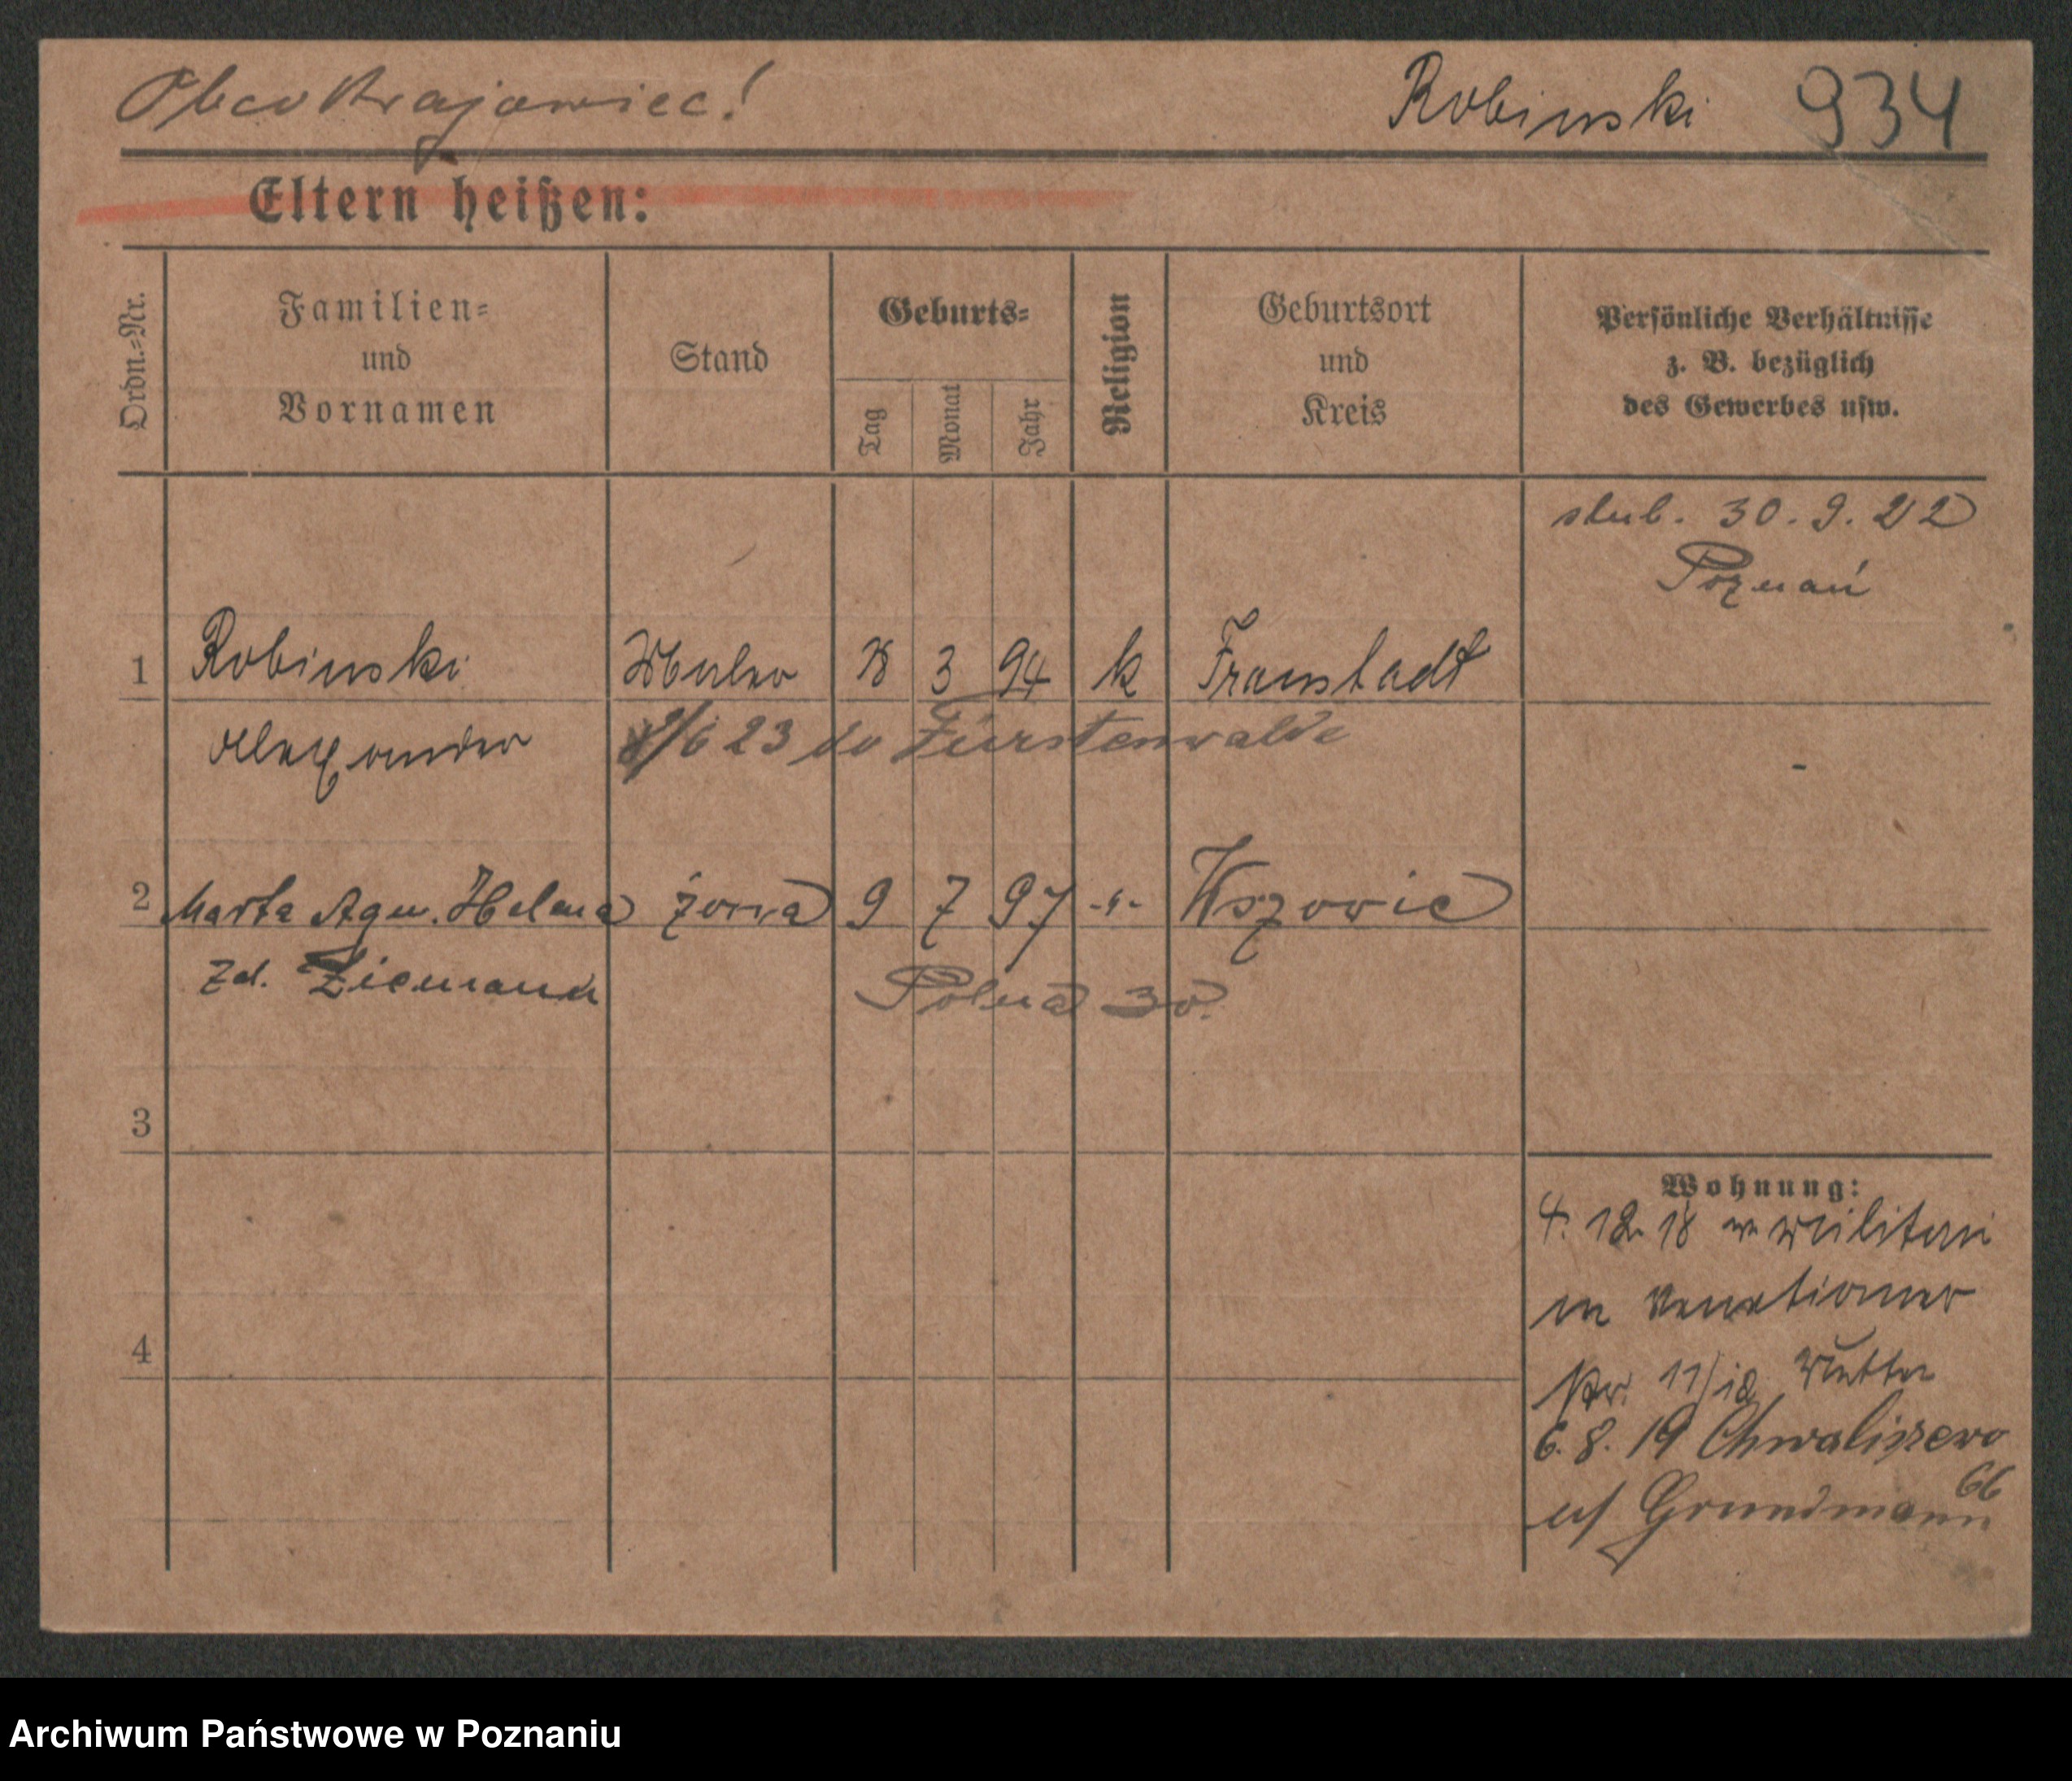 Obcokrajowiec!
Robinski 934
Eltern heißen:
Ordn.=Nr.
Familien=
und
Vornamen
Stand
Geburts=
Tag
Monat
Jahr
Religion
Geburtsort
und
Kreis
Persönliche Verhältnisse
z. B. bezüglich
des Gewerbes usw.
ślub. 30. 9. 22
Poznań
1 Robinski Maler 18 3 94 k Fraustadt
Alexander
2/6 23 do Fürstenwalde
2 Marta Agn. Helena żona 9 7 97 -"- Wszowie
zd. Ziemann
Polna 30.
3
4
Wohnung:
4. 12. 18 v. Militär
Venetianer
11/12 Mutter
6. 8. 19 Chwaliszewo
66
u/ Grundmann
Archiwum Państwowe w Poznaniu